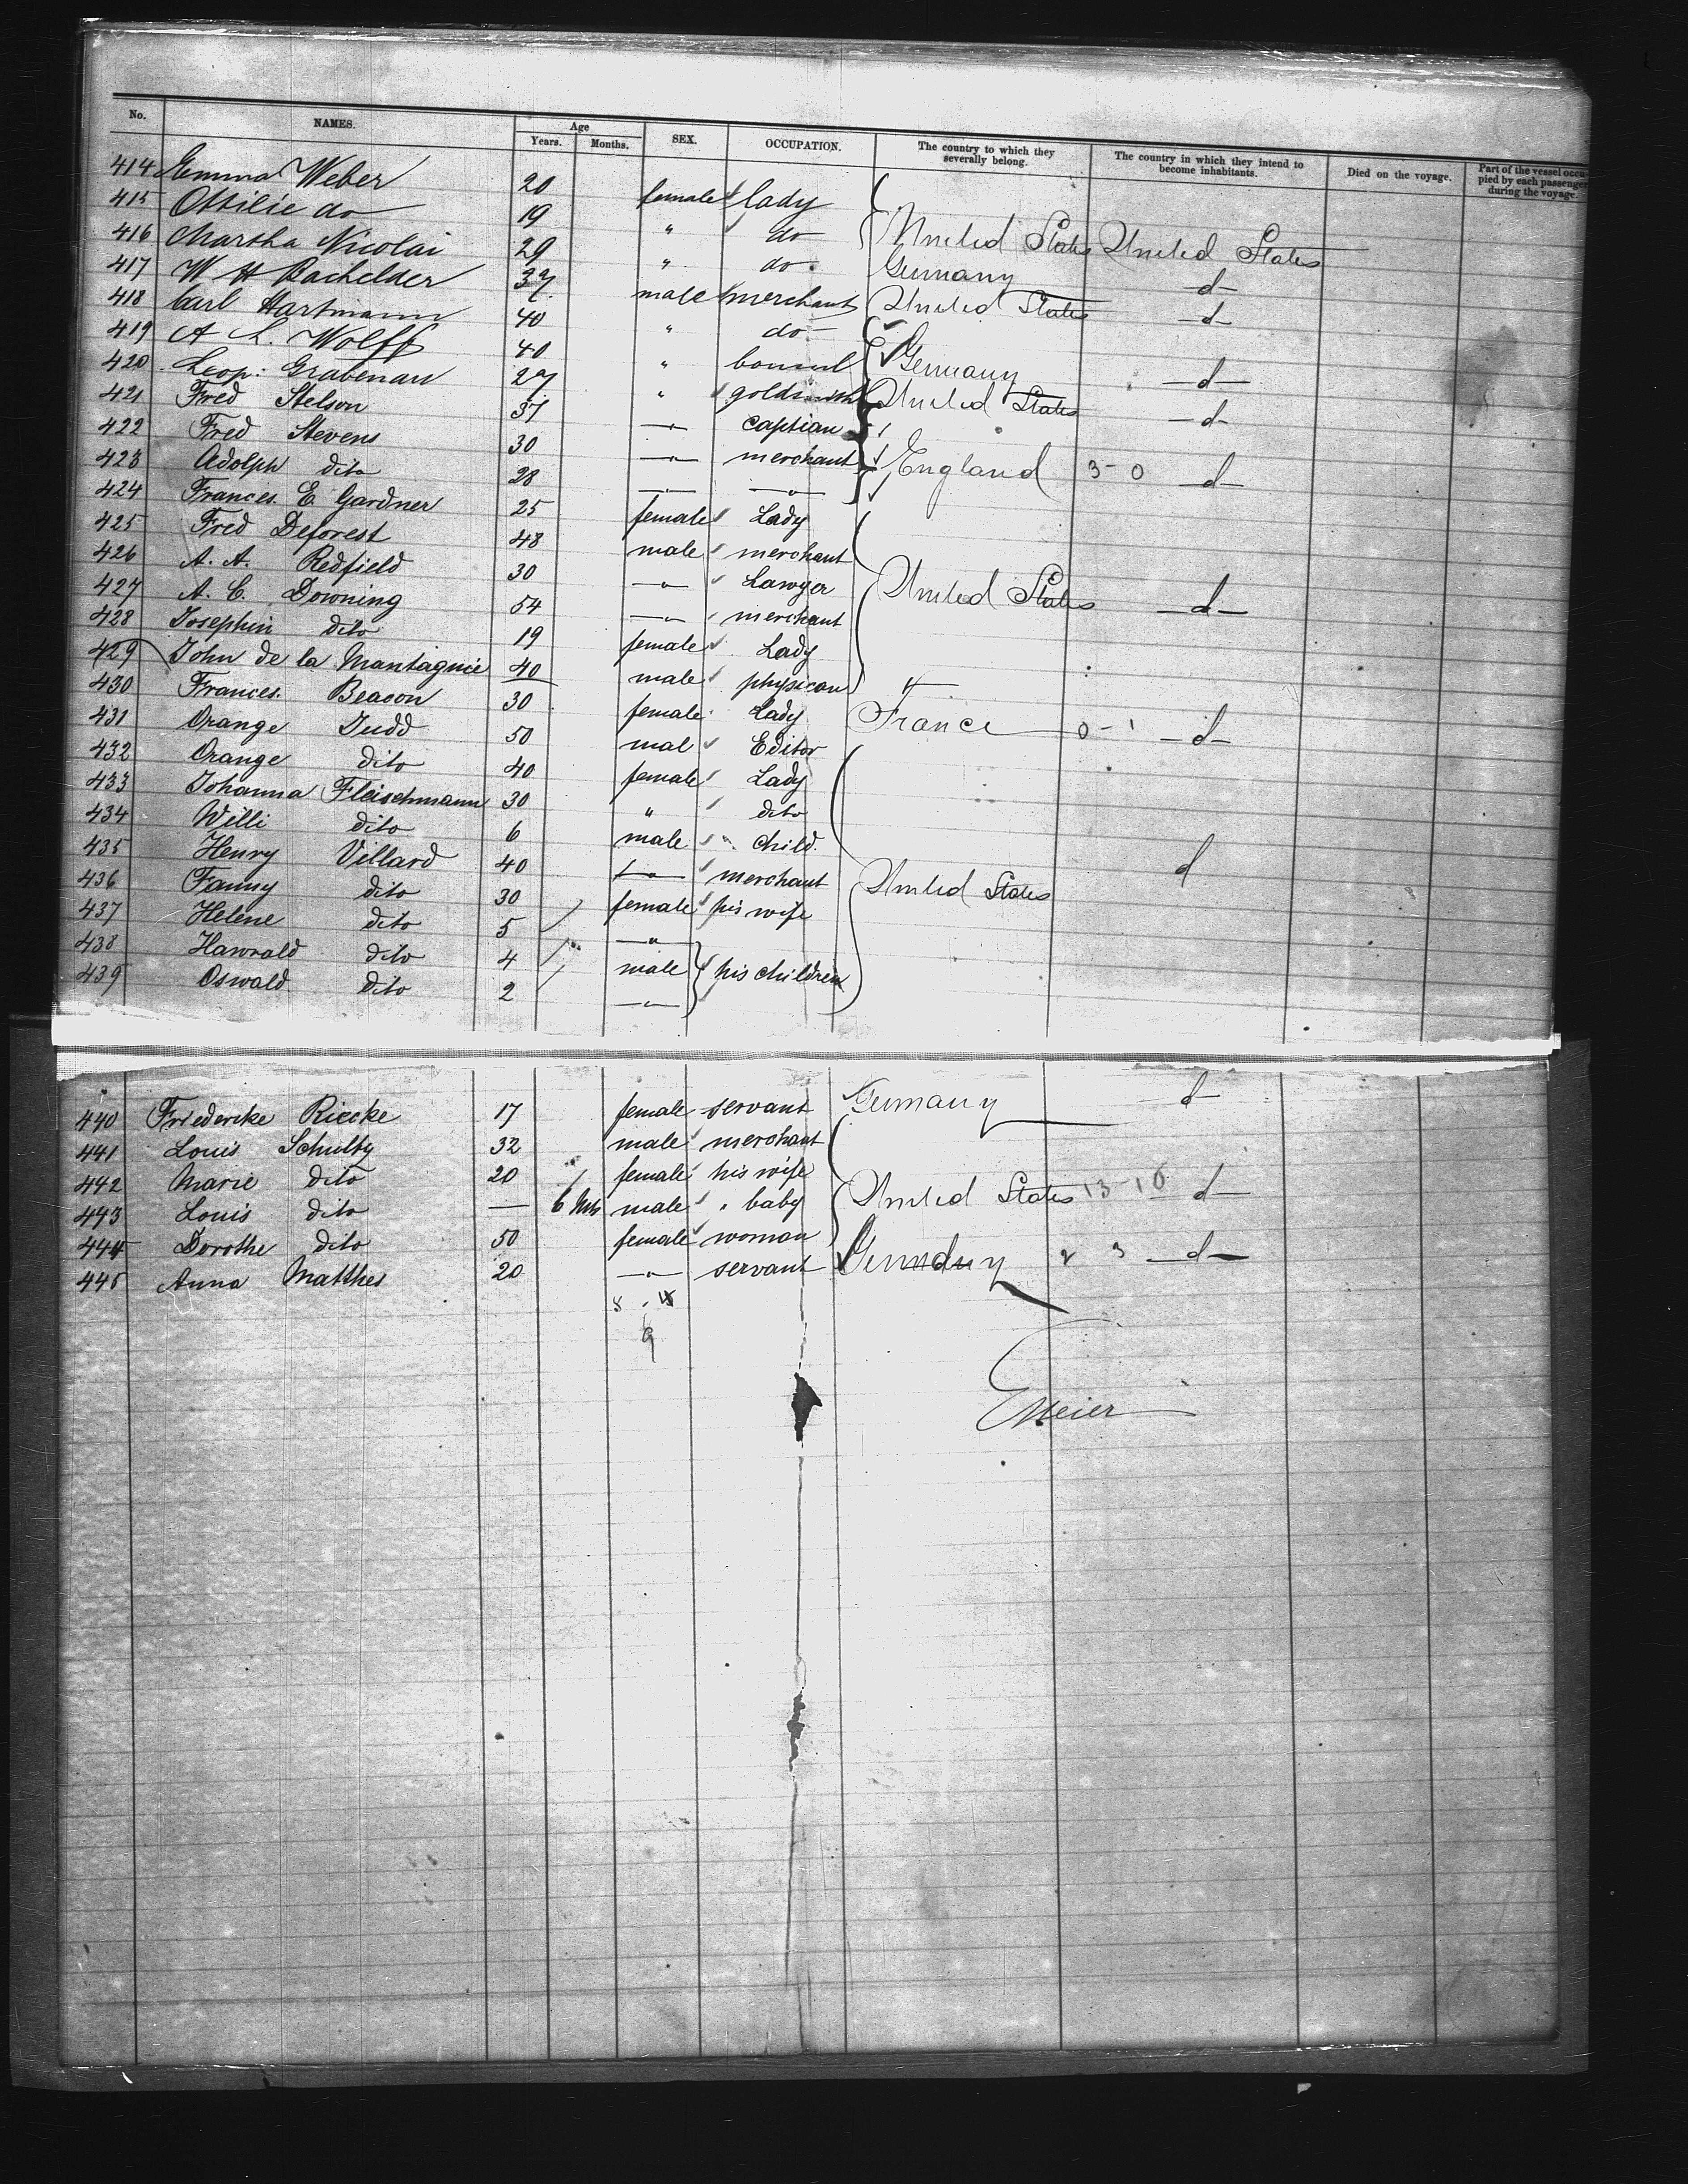 No. NAMES. Age Years. Months. SEX. OCCUPATION. The country to which they severally belong. The country in which they intend to become inhabitants. Died on the voyage. Part of the vessel occupied by each passenger during the voyage.
414 Emma Weber 20 female lady
415 Ottilie do 19 " do United States United States
416 Martha Nicolai 29 " do Germany d
417 W H Bachelder 37 male merchant United States d
418 Carl Hartmann 40 " do
419 A L. Wolff 40 " Germany d
420 Leop: Grabenau 27 " goldsmith United States d
421 Fred Stelson 37 " Captian
422 Fred Stevens 30 " merchant England 3-0 d
423 Adolph dito 28 " "
424 Frances. E. Gardner 25 female Lady
425 Fred Deforest 48 male merchant
426 A. A. Redfield 30 " Lawyer United States d
427 A. C. Downing 54 " merchant
428 Josephin dito 19 female Lady
429 John de la Mantagnie 40 male physican
430 Frances. Beacon 30 female Lady France 0-1 d
431 Orange Judd 50 mal Editor
432 Orange dito 40 female Lady
433 Johanna Fleischmann 30 " dito
434 Willi dito 6 male child.
435 Henry Villard 40 " merchant United States d
436 Fanny dito 30 female his wife
437 Helene dito 5 "
438 Hawrald dito 4 male his children
439 Oswald dito 2 "
440 Friedericke Riecke 17 female servant Germany d
441 Louis Schulty 32 male merchant
442 Marie dito 20 female his wife
443 Louis dito — 6 Mts male " baby United States 13-10 d
444 Dorothe dito 50 female woman
445 Anna Matthes 20 " servant Germany 2 3 d
9
EMeier